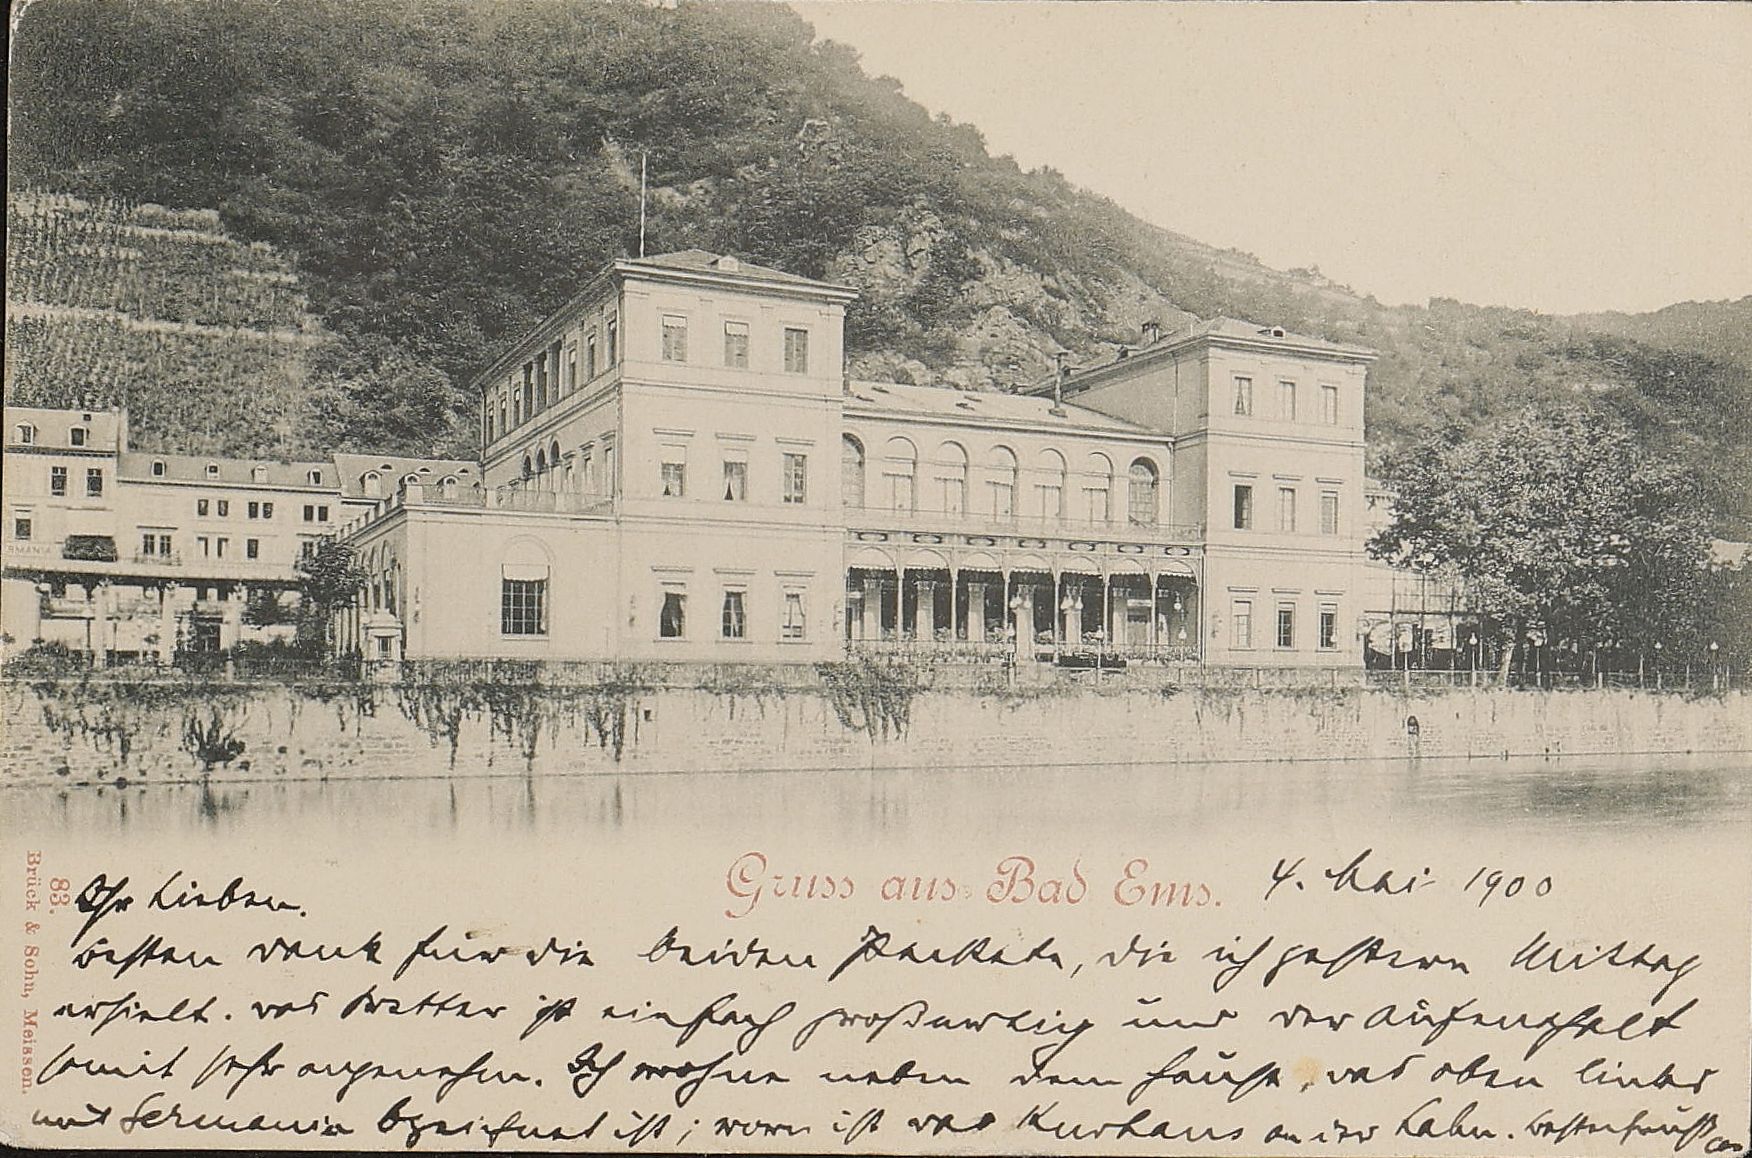 RMANIA
Gruss aus Bad Ems.
4. Mai 1900
83.
Brück & Sohn, Meissen.
Ihr Lieben.
besten Dank für die beiden Packete, die ich gestern Mittag
erhielt. Das Wetter ist einfach großartig und der Aufenthalt
somit sehr angenehm. Ich wohne neben dem Hause, das oben links
mit Germania bezeichnet ist; vorn ist das Kurhaus an der Lahn.